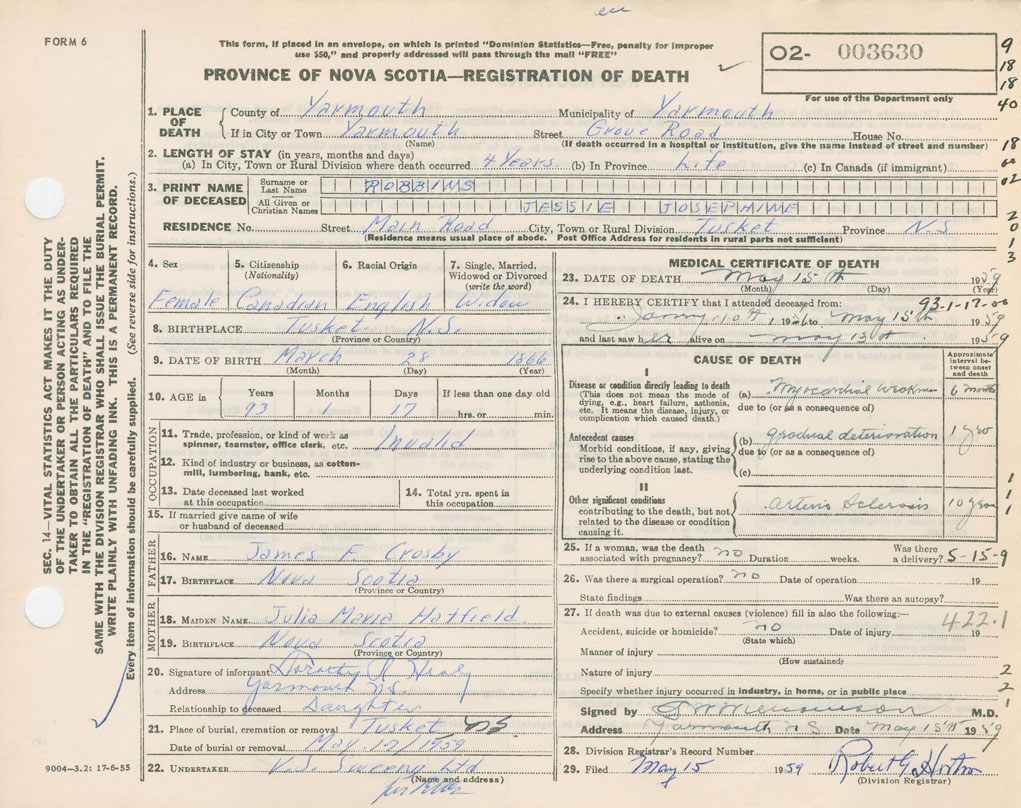 FORM 6
This form, if placed in an envelope, on which is printed "Dominion Statistics—Free, penalty for improper
use $50," and properly addressed will pass through the mail "FREE"
PROVINCE OF NOVA SCOTIA—REGISTRATION OF DEATH
02- 003630
For use of the Department only
9
18
18
40
18
60
02
2
0
1
3
1. PLACE OF DEATH
County of Yarmouth Municipality of Yarmouth
If in City or Town Yarmouth Street Grove Road House No.
(Name) (If death occurred in a hospital or institution, give the name instead of street and number)
2. LENGTH OF STAY (in years, months and days)
(a) In City, Town or Rural Division where death occurred 4 Years. (b) In Province Life (c) In Canada (if immigrant)
3. PRINT NAME OF DECEASED
Surname or Last Name ROBBINS
All Given or Christian Names JESSIE JOSEPHINE
RESIDENCE No. Street Main Road City, Town or Rural Division Tusket Province N.S
(Residence means usual place of abode. Post Office Address for residents in rural parts not sufficient)
4. Sex
Female
5. Citizenship (Nationality)
Canadian
6. Racial Origin
English
7. Single, Married, Widowed or Divorced (write the word)
Widow
8. BIRTHPLACE Tusket N.S.
(Province or Country)
9. DATE OF BIRTH March 28 1866
(Month) (Day) (Year)
10. AGE in Years Months Days If less than one day old
93 1 17 hrs. or min.
OCCUPATION
11. Trade, profession, or kind of work as spinner, teamster, office clerk, etc. Invalid
12. Kind of industry or business, as cotton-mill, lumbering, bank, etc.
13. Date deceased last worked at this occupation
14. Total yrs. spent in this occupation
15. If married give name of wife or husband of deceased
FATHER
16. NAME James F Crosby
17. BIRTHPLACE Nova Scotia
(Province or Country)
MOTHER
18. MAIDEN NAME Julia Maria Hatfield
19. BIRTHPLACE Nova Scotia
(Province or Country)
20. Signature of informant Dorothy R Healy
Address Yarmouth N.S.
Relationship to deceased Daughter
21. Place of burial, cremation or removal Tusket NS
Date of burial or removal May 17/1959
22. UNDERTAKER V.S. Sweeny Ltd
(Name and address)
MEDICAL CERTIFICATE OF DEATH
23. DATE OF DEATH May 15th 1959
(Month) (Day) (Year)
93-1-17-00
24. I HEREBY CERTIFY that I attended deceased from:
10th to May 15th 1959
and last saw her alive on May 13th 1959
CAUSE OF DEATH
Approximate interval between onset and death
I
Disease or condition directly leading to death
(This does not mean the mode of dying, e.g., heart failure, asthenia, etc. It means the disease, injury, or complication which caused death.)
(a) Myocardial weakness 6 months
due to (or as a consequence of)
Antecedent causes
Morbid conditions, if any, giving rise to the above cause, stating the underlying condition last.
(b) gradual deterioration 1 year
due to (or as a consequence of)
(c)
II
Other significant conditions
contributing to the death, but not related to the disease or condition causing it.
Arterio Sclerosis 10 years
1
1
1
25. If a woman, was the death associated with pregnancy? no Duration weeks. Was there a delivery?
5-15-9
26. Was there a surgical operation? no Date of operation 19
State findings Was there an autopsy?
27. If death was due to external causes (violence) fill in also the following:—
422.1
Accident, suicide or homicide? no Date of injury 19
(State which)
Manner of injury
(How sustained)
Nature of injury
Specify whether injury occurred in industry, in home, or in public place
2
2
1
Signed by M.D.
Address Yarmouth N S Date May 15th 1959
28. Division Registrar's Record Number
29. Filed May 15 1959 Robert G Horton
(Division Registrar)
9004—3.2: 17-6-55
SEC. 14—VITAL STATISTICS ACT MAKES IT THE DUTY
OF THE UNDERTAKER OR PERSON ACTING AS UNDER-
TAKER TO OBTAIN ALL THE PARTICULARS REQUIRED
IN THE "REGISTRATION OF DEATH" AND TO FILE THE
SAME WITH THE DIVISION REGISTRAR WHO SHALL ISSUE THE BURIAL PERMIT.
WRITE PLAINLY WITH UNFADING INK. THIS IS A PERMANENT RECORD.
Every item of information should be carefully supplied. (See reverse side for instructions.)